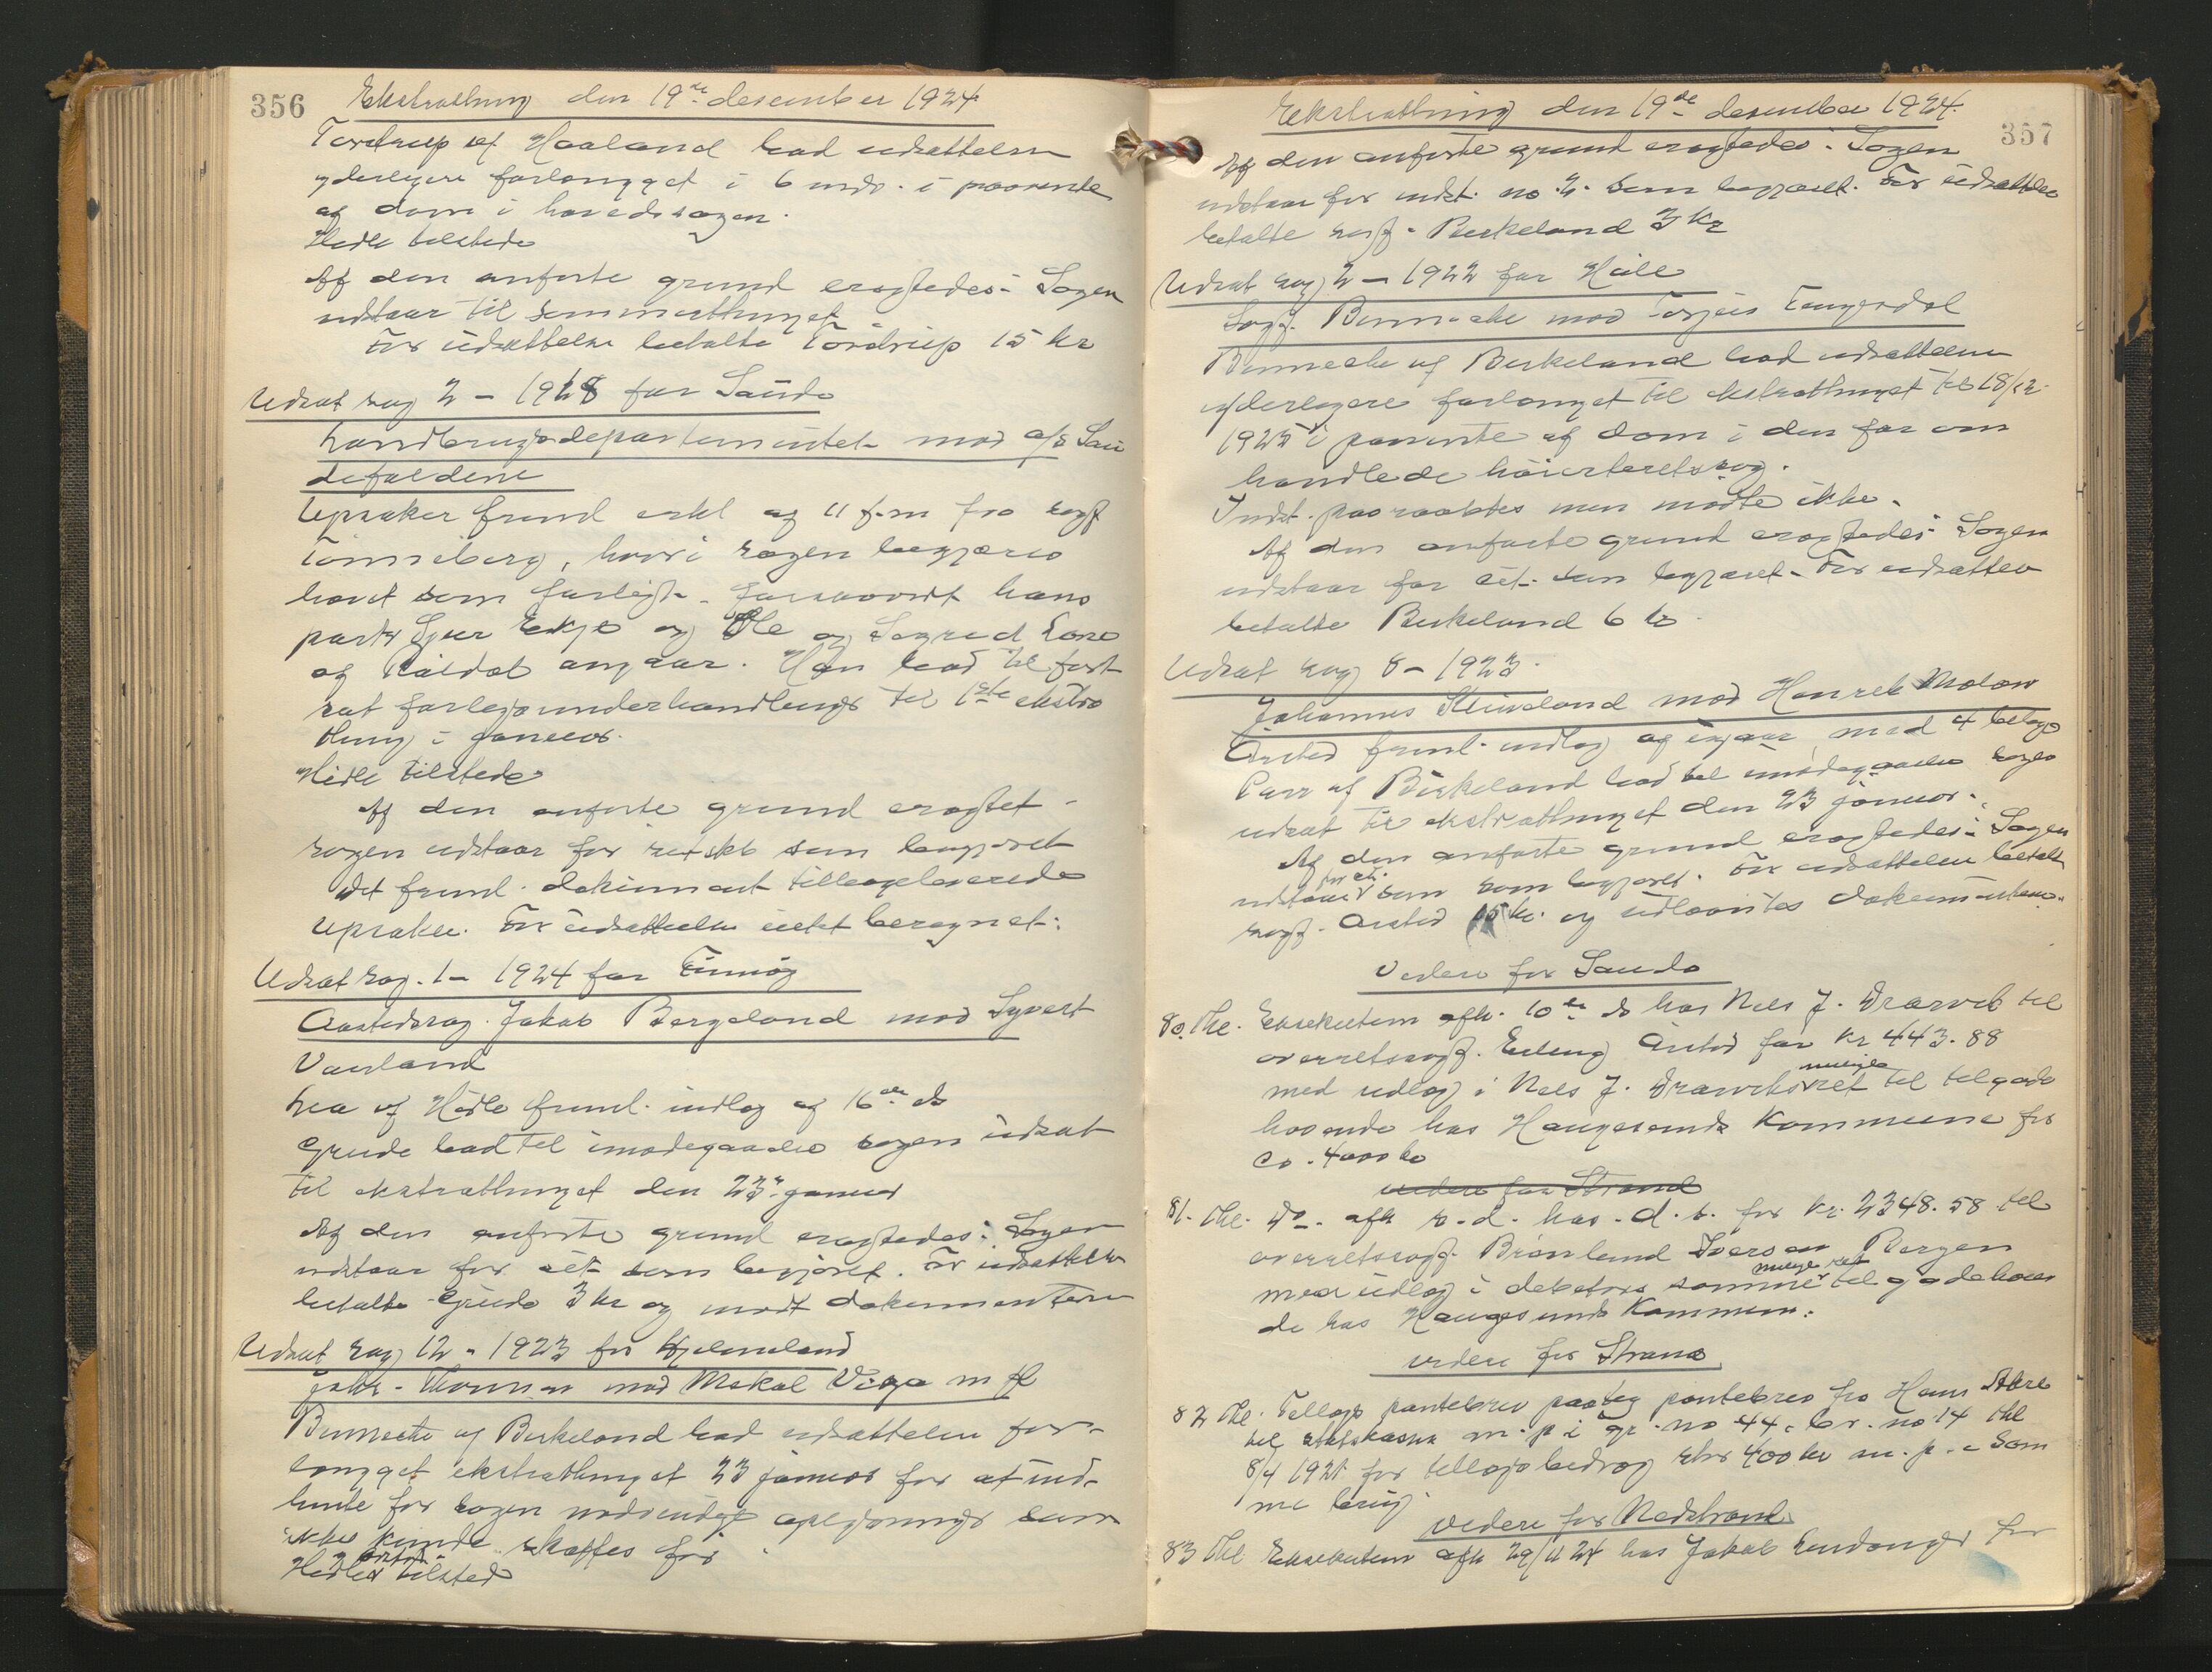 356
Ekstrathing den 19de desember 1924.
Tordrup af Haaland bad udsættelsen
yderligere forlænget i 6 mdr. i paavente
af dom i hovedsagen.
Hidle tilstede
Af den anførte grund eragtedes: Sagen
udstaar til sommerthinget
For udsættelsen betalte Tordrup 15 kr
Udsat sag 2 - 1918 for Saude
Landbrugsdepartementet mod a/s Sau
defaldene
Opsaker freml erkl af 11 f.m fra sagf
Tønneberg, hvori sagen begjæres
hævet som forligt, forsaavidt hans
parter og Ole og Sigred
og Røldal angaar. Han bad til fort
sat forligsunderhandlinger til 1ste ekstra
thing i januar.
Hidle tilstede
Af den anførte grund eragtet:
sagen udstaar for retsk som begjæret
Det freml. dokument tilbageleveredes
Opsaker. For udsættelsen intet beregnet.
Udsat sag. 1 - 1924 for Finnøy
Aastedssag Jakob Bergeland mod Syvert
Vauland
Lea af Hidle freml. indlæg af 16de ds
Grude bad til imødegaaelse sagen udsat
til ekstrathinget den 23de januar
Af den anførte grund eragtedes: Sagen
udstaar for ret som begjæret. For udsættelsen
betalte Grude 3 kr og modt dokumenterne
Udsat sag 12 - 1923 for Hjelmeland
Johs. Thomsen mod Mikal Viga m fl
Bennecke af Birkeland bad udsættelsen for-
længet ekstrathinget 23 januar for at ind-
hente for sagen nødvendige oplysninger som
ikke kunde skaffes før
Hidle tilsted
Ekstrathing den 19de desember 1924.
357
Af den anførte grund eragtedes: Sagen
udstaar for indst. no. 2. som begjæret. For udsættelsen
betalte sagf. Birkeland 3 kr
Udsat sag 2 - 1922 for Hjelm
Sagf. Bennecke mod Torjeis
Bennecke af Birkeland bad udsættelsen
yderligere forlænget til ekstrathinget til 18/12
1925 i paavente af dom i den før om
handlede høiesteretssag.
Indst. paaraabtes men mødte ikke.
Af den anførte grund eragtedes: Sagen
udstaar for ret som begjæret. For udsættelse
betalte Birkeland 6 kr.
Udsat sag 8 - 1923.
Johannes mod Henrik Molaw
Aarstad freml. indlæg af igaar, med 4 bilage
Parr af Birkeland bad til imødegaaelse sagen
udsat til ekstrathinget den 23 januar.
Af den anførte grund eragtedes: Sagen
udstaar for ret som begjæret. For udsættelsen betalte
sagf. Aarstad 15 kr. og udlaantes dokumenterne.
Videre for Saude
80. thl. Eksekution afh. 10de ds hos Nels J. Drarvik til
overretssagf. Erling Aarstad for kr 443.88
med udlæg i Nels J. Drarviks mulige ret til tilgode
havende hos Haugesunds Kommune for
ca. 4000 kr
videre for Strand
81. thl. Do. afh s.d. hos d. s. for kr. 2348.58 til
overretssagf. Brønlund Iversen Bergen
med udlæg i debitors samme mulige ret tilgodehaven
de hos Haugesunds Kommune.
videre for Strand
82 thl. Tillægs pantebrev paateg pantebrev fra Hans
til statskassen m. p i gr. no 44, br. no 14 thl
8/4 1921 for tillægsbedrag stor 400 kr m. p. i sam
me brug
Videre for Nedstrand
83 thl Eksekution afh 29/11 24 hos Jakob for